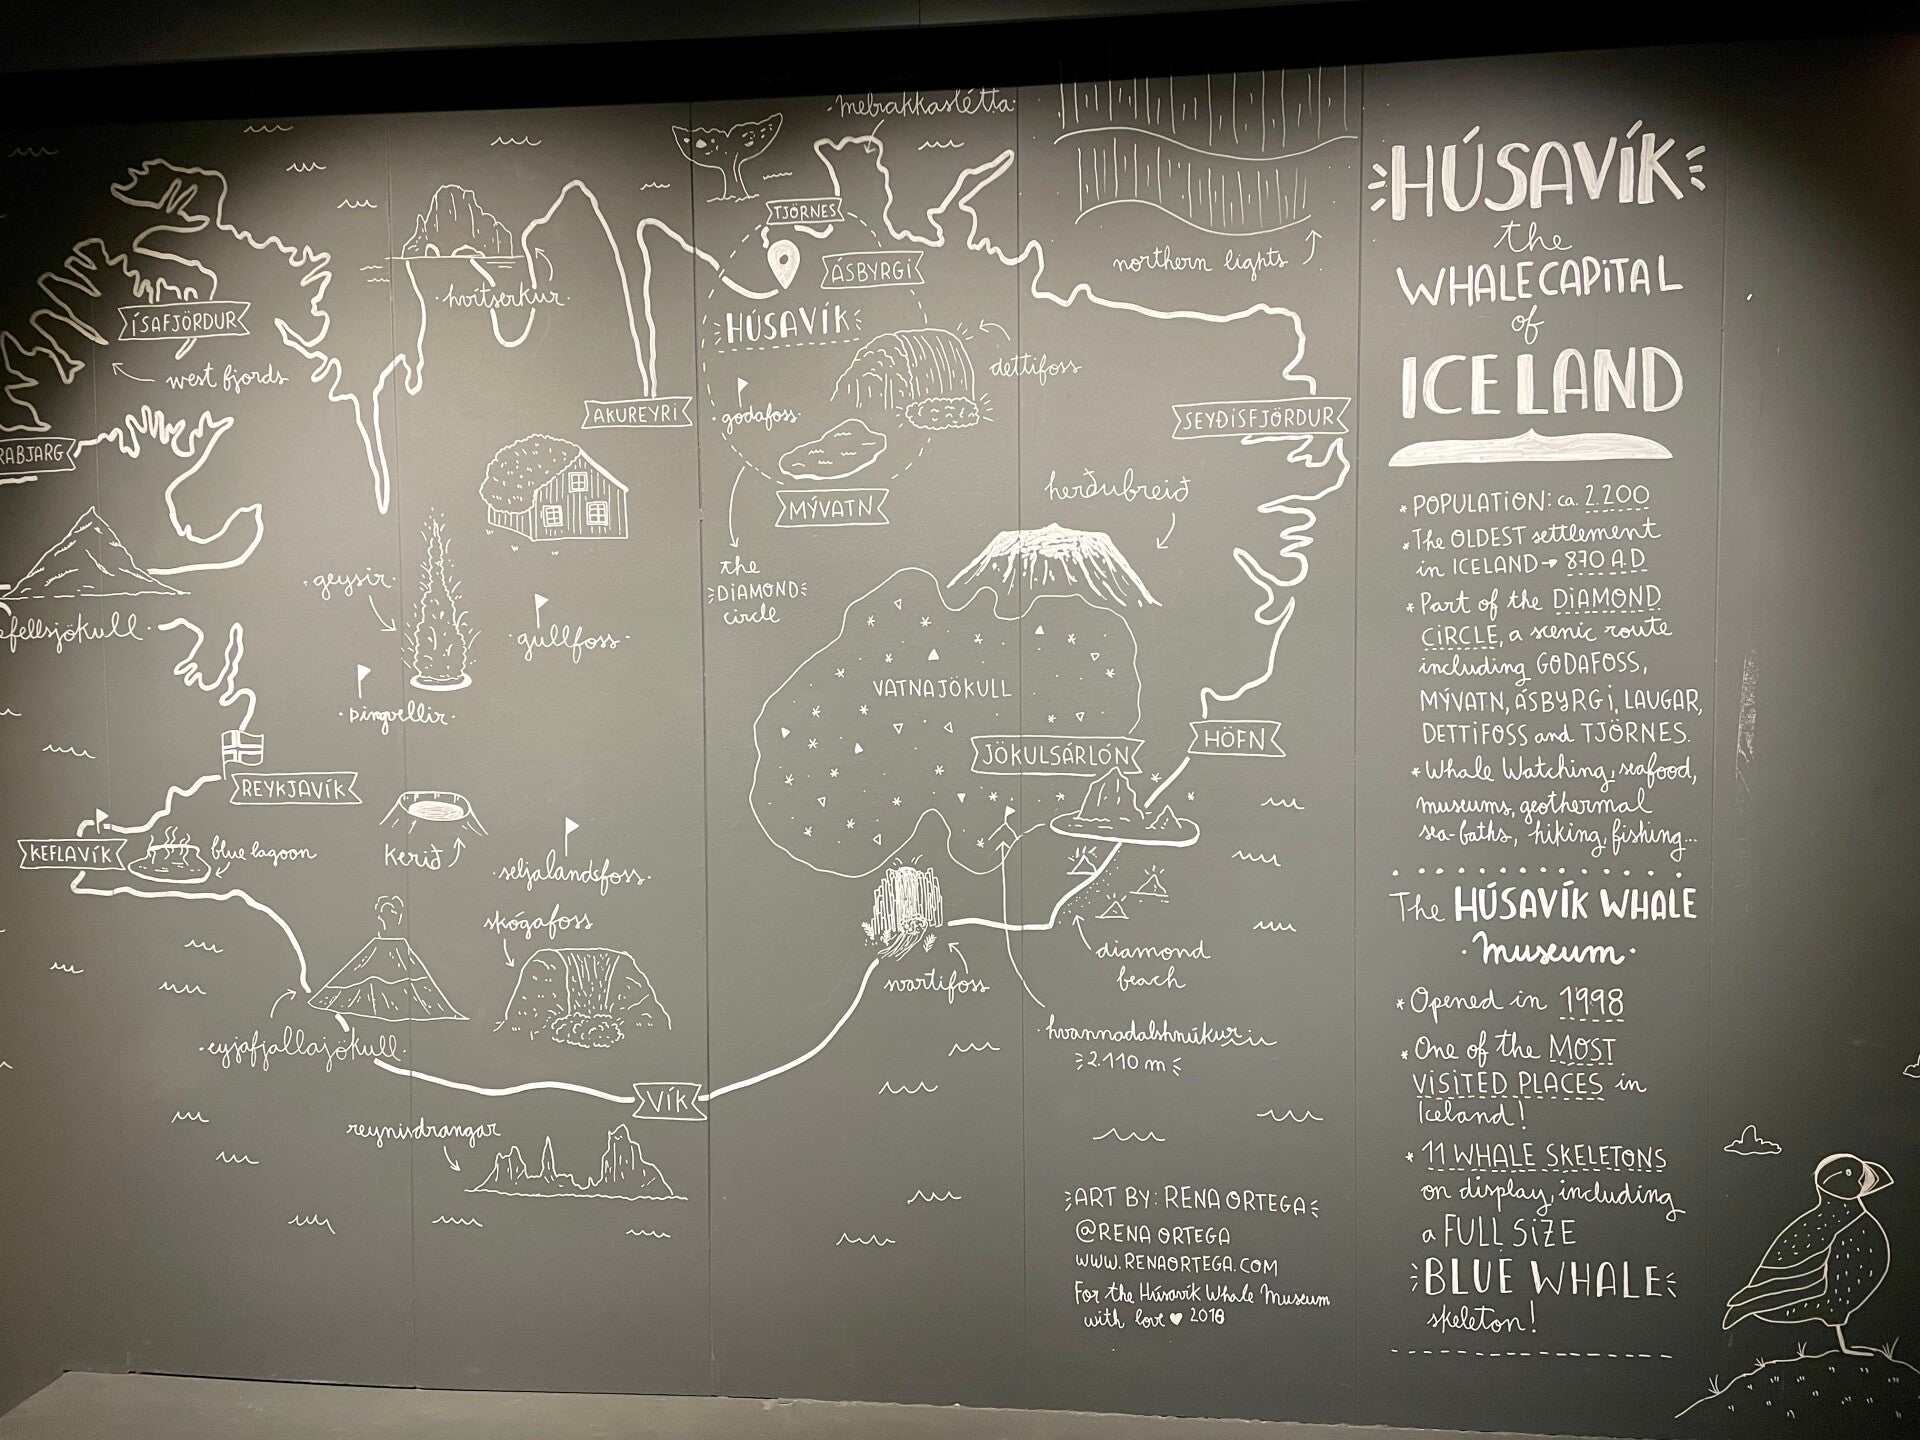 ·melrakkaslétta·
TJÖRNES
ÁSBYRGI
HÚSAVÍK
hvítserkur·
ÍSAFJÖRDUR
west fjords
northern lights
dettifoss
godafoss
AKUREYRI
SEYÐISFJÖRDUR
RABJARG
MÝVATN
herðubreið
the
DIAMOND
circle
·geysir·
·gullfoss·
efellsjökull·
·þingvellir·
VATNAJÖKULL
JÖKULSÁRLÓN
HÖFN
REYKJAVÍK
KEFLAVÍK
blue lagoon
kerið
·seljalandsfoss·
skógafoss
svartifoss
diamond
beach
·eyjafjallajökull·
·hvannadalshnúkur·
2.110 m
VÍK
reynisdrangar
ART BY: RENA ORTEGA
@RENA ORTEGA
WWW.RENAORTEGA.COM
For the Húsavík Whale Museum
with love ♥ 2018
HÚSAVÍK
the
WHALE CAPITAL
of
ICELAND
* POPULATION: ca. 2.200
* The OLDEST settlement
in ICELAND → 870 A.D
* Part of the DIAMOND
CIRCLE, a scenic route
including GODAFOSS,
MÝVATN, ÁSBYRGI, LAUGAR,
DETTIFOSS and TJÖRNES.
* Whale Watching, seafood,
museums, geothermal
sea-baths, hiking, fishing...
The HÚSAVÍK WHALE
·Museum·
* Opened in 1998
* One of the MOST
VISITED PLACES in
Iceland!
* 11 WHALE SKELETONS
on display, including
a FULL SIZE
BLUE WHALE
skeleton!